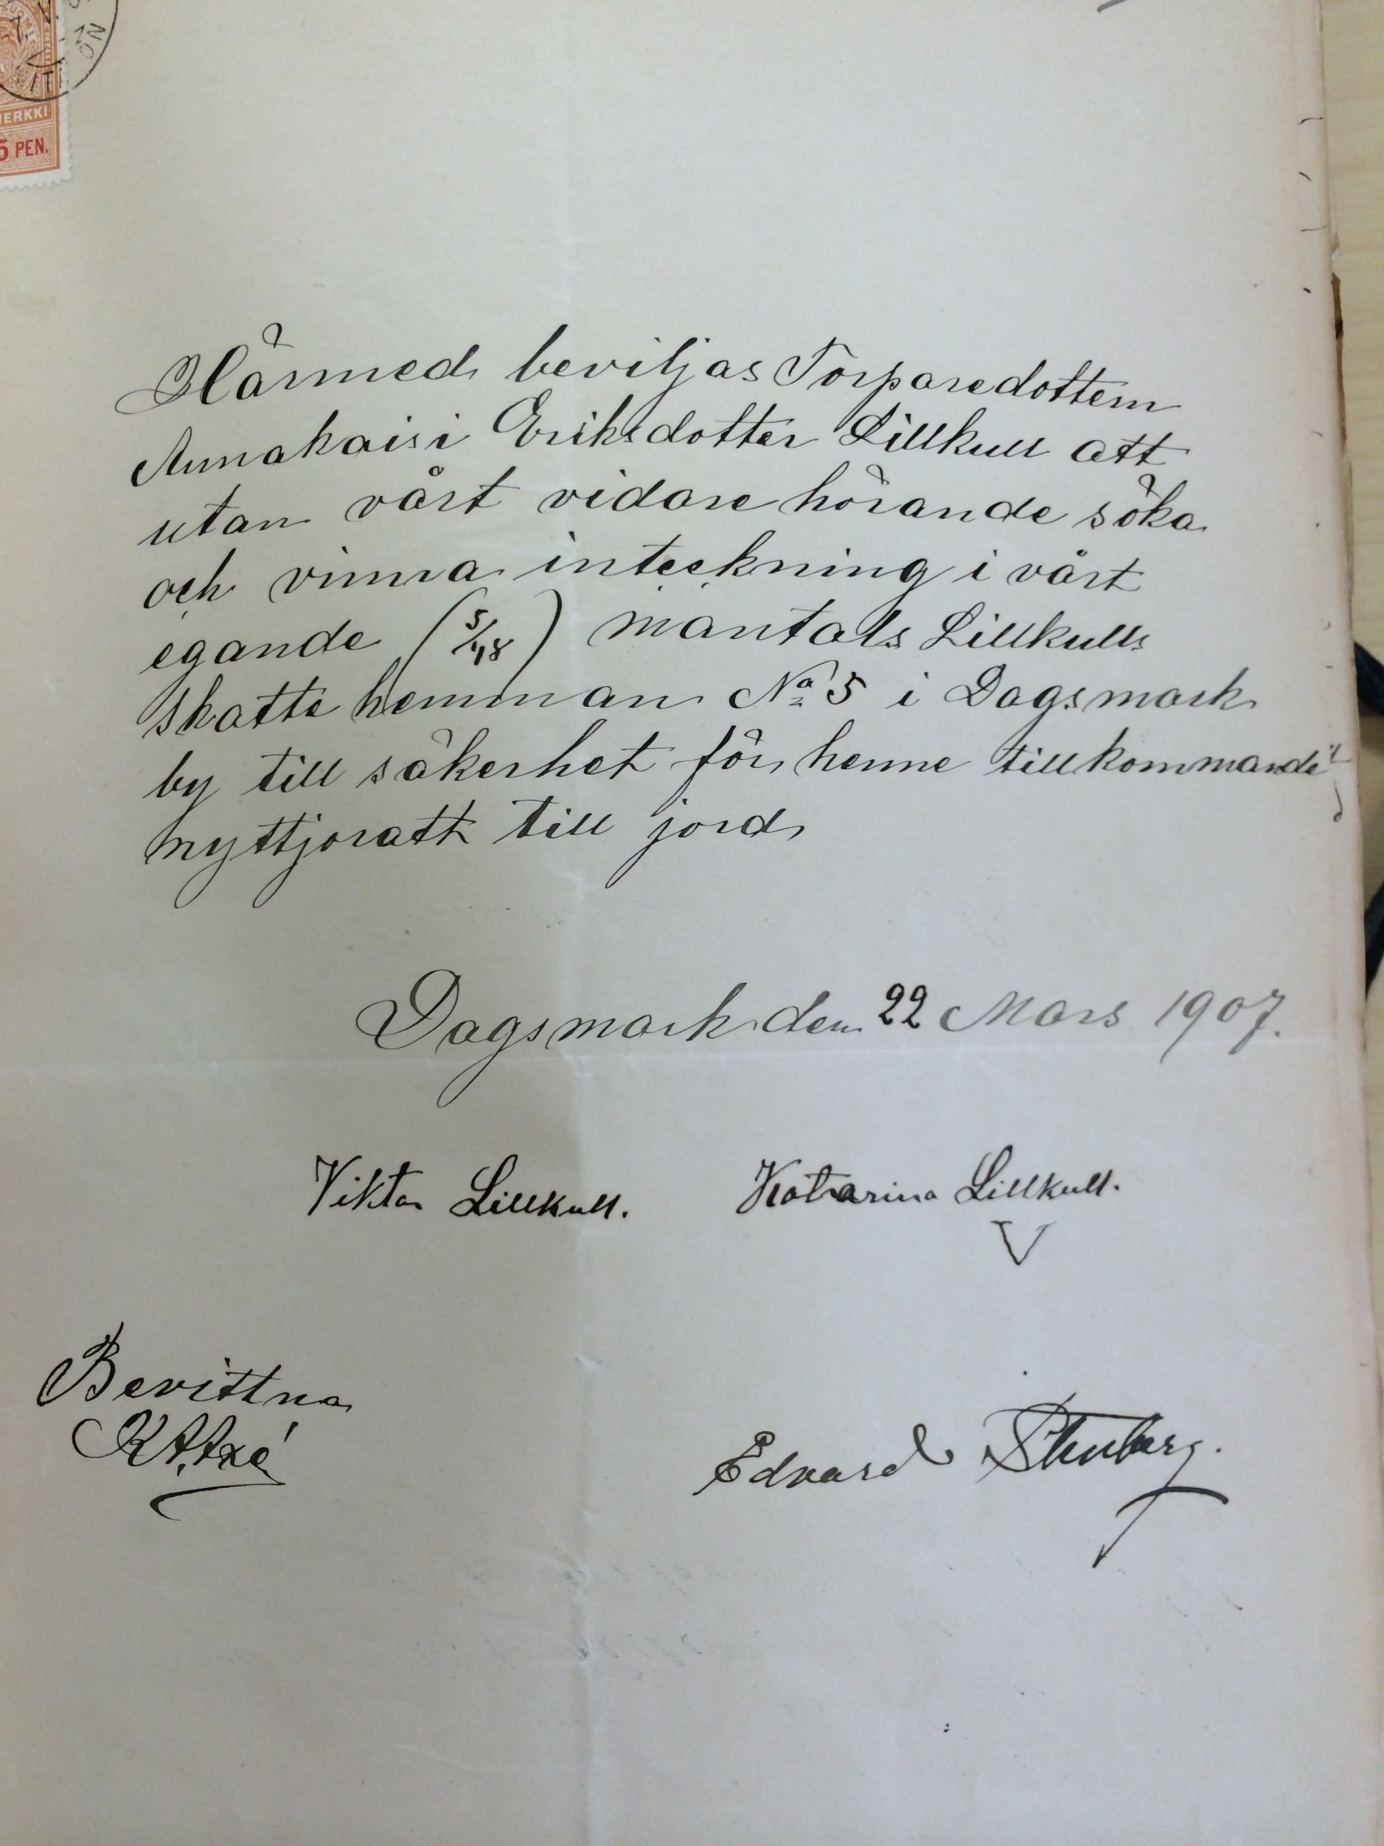 MERKKI
5 PEN.
Härmed beviljas Torparedottern
Annakaisi Eriksdotter Lillkull att
utan vårt vidare hörande söka
och vinna inteckning i vårt
egande (5/48) mantals Lillkulls
skatte hemman No 5 i Dagsmark
by till säkerhet för henne tillkommande
nyttjoratt till jord
Dagsmark den 22 Mars 1907.
Viktor Lillkull. Katarina Lillkull.
Bevittna
Edvard